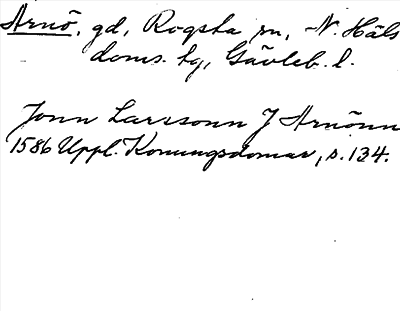 Arnö, gd, Rogsta sn, N. Häls
doms. tg, Gävleb. l.
Jonn Larrsonn J Arnönn
1586 Uppl. Konungsdomar, s. 134.